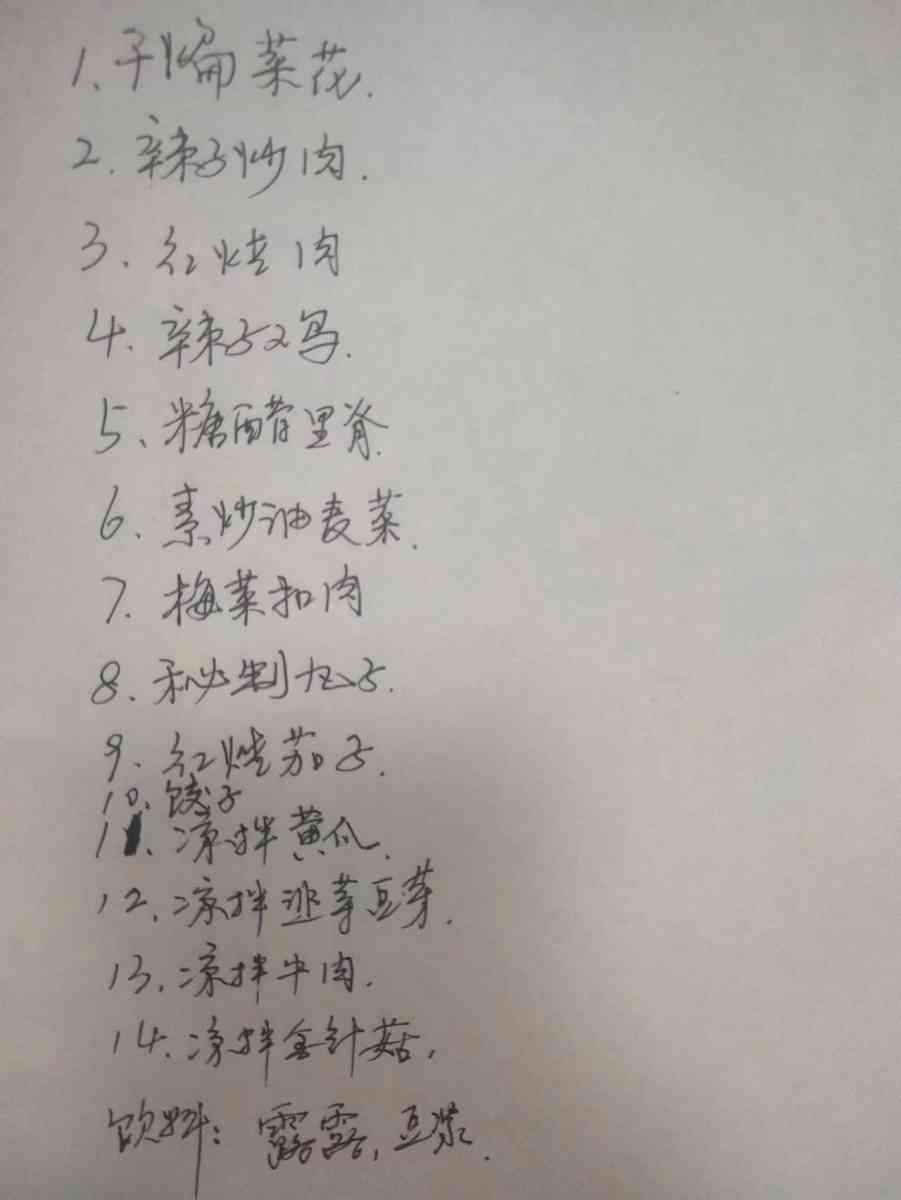 1、干煸菜花.
2. 辣子炒肉.
3. 红烧肉
4. 辣子鸡.
5、糖醋里脊
6、素炒油麦菜.
7. 梅菜扣肉
8. 秘制丸子.
9. 红烧茄子.
10、饺子
11. 凉拌黄瓜.
12. 凉拌 豆芽.
13. 凉拌牛肉.
14. 凉拌金针菇.
饮料：露露，豆浆.